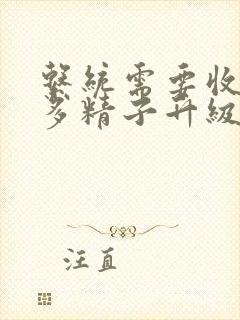 繫統需要收
多精子升級
汪直